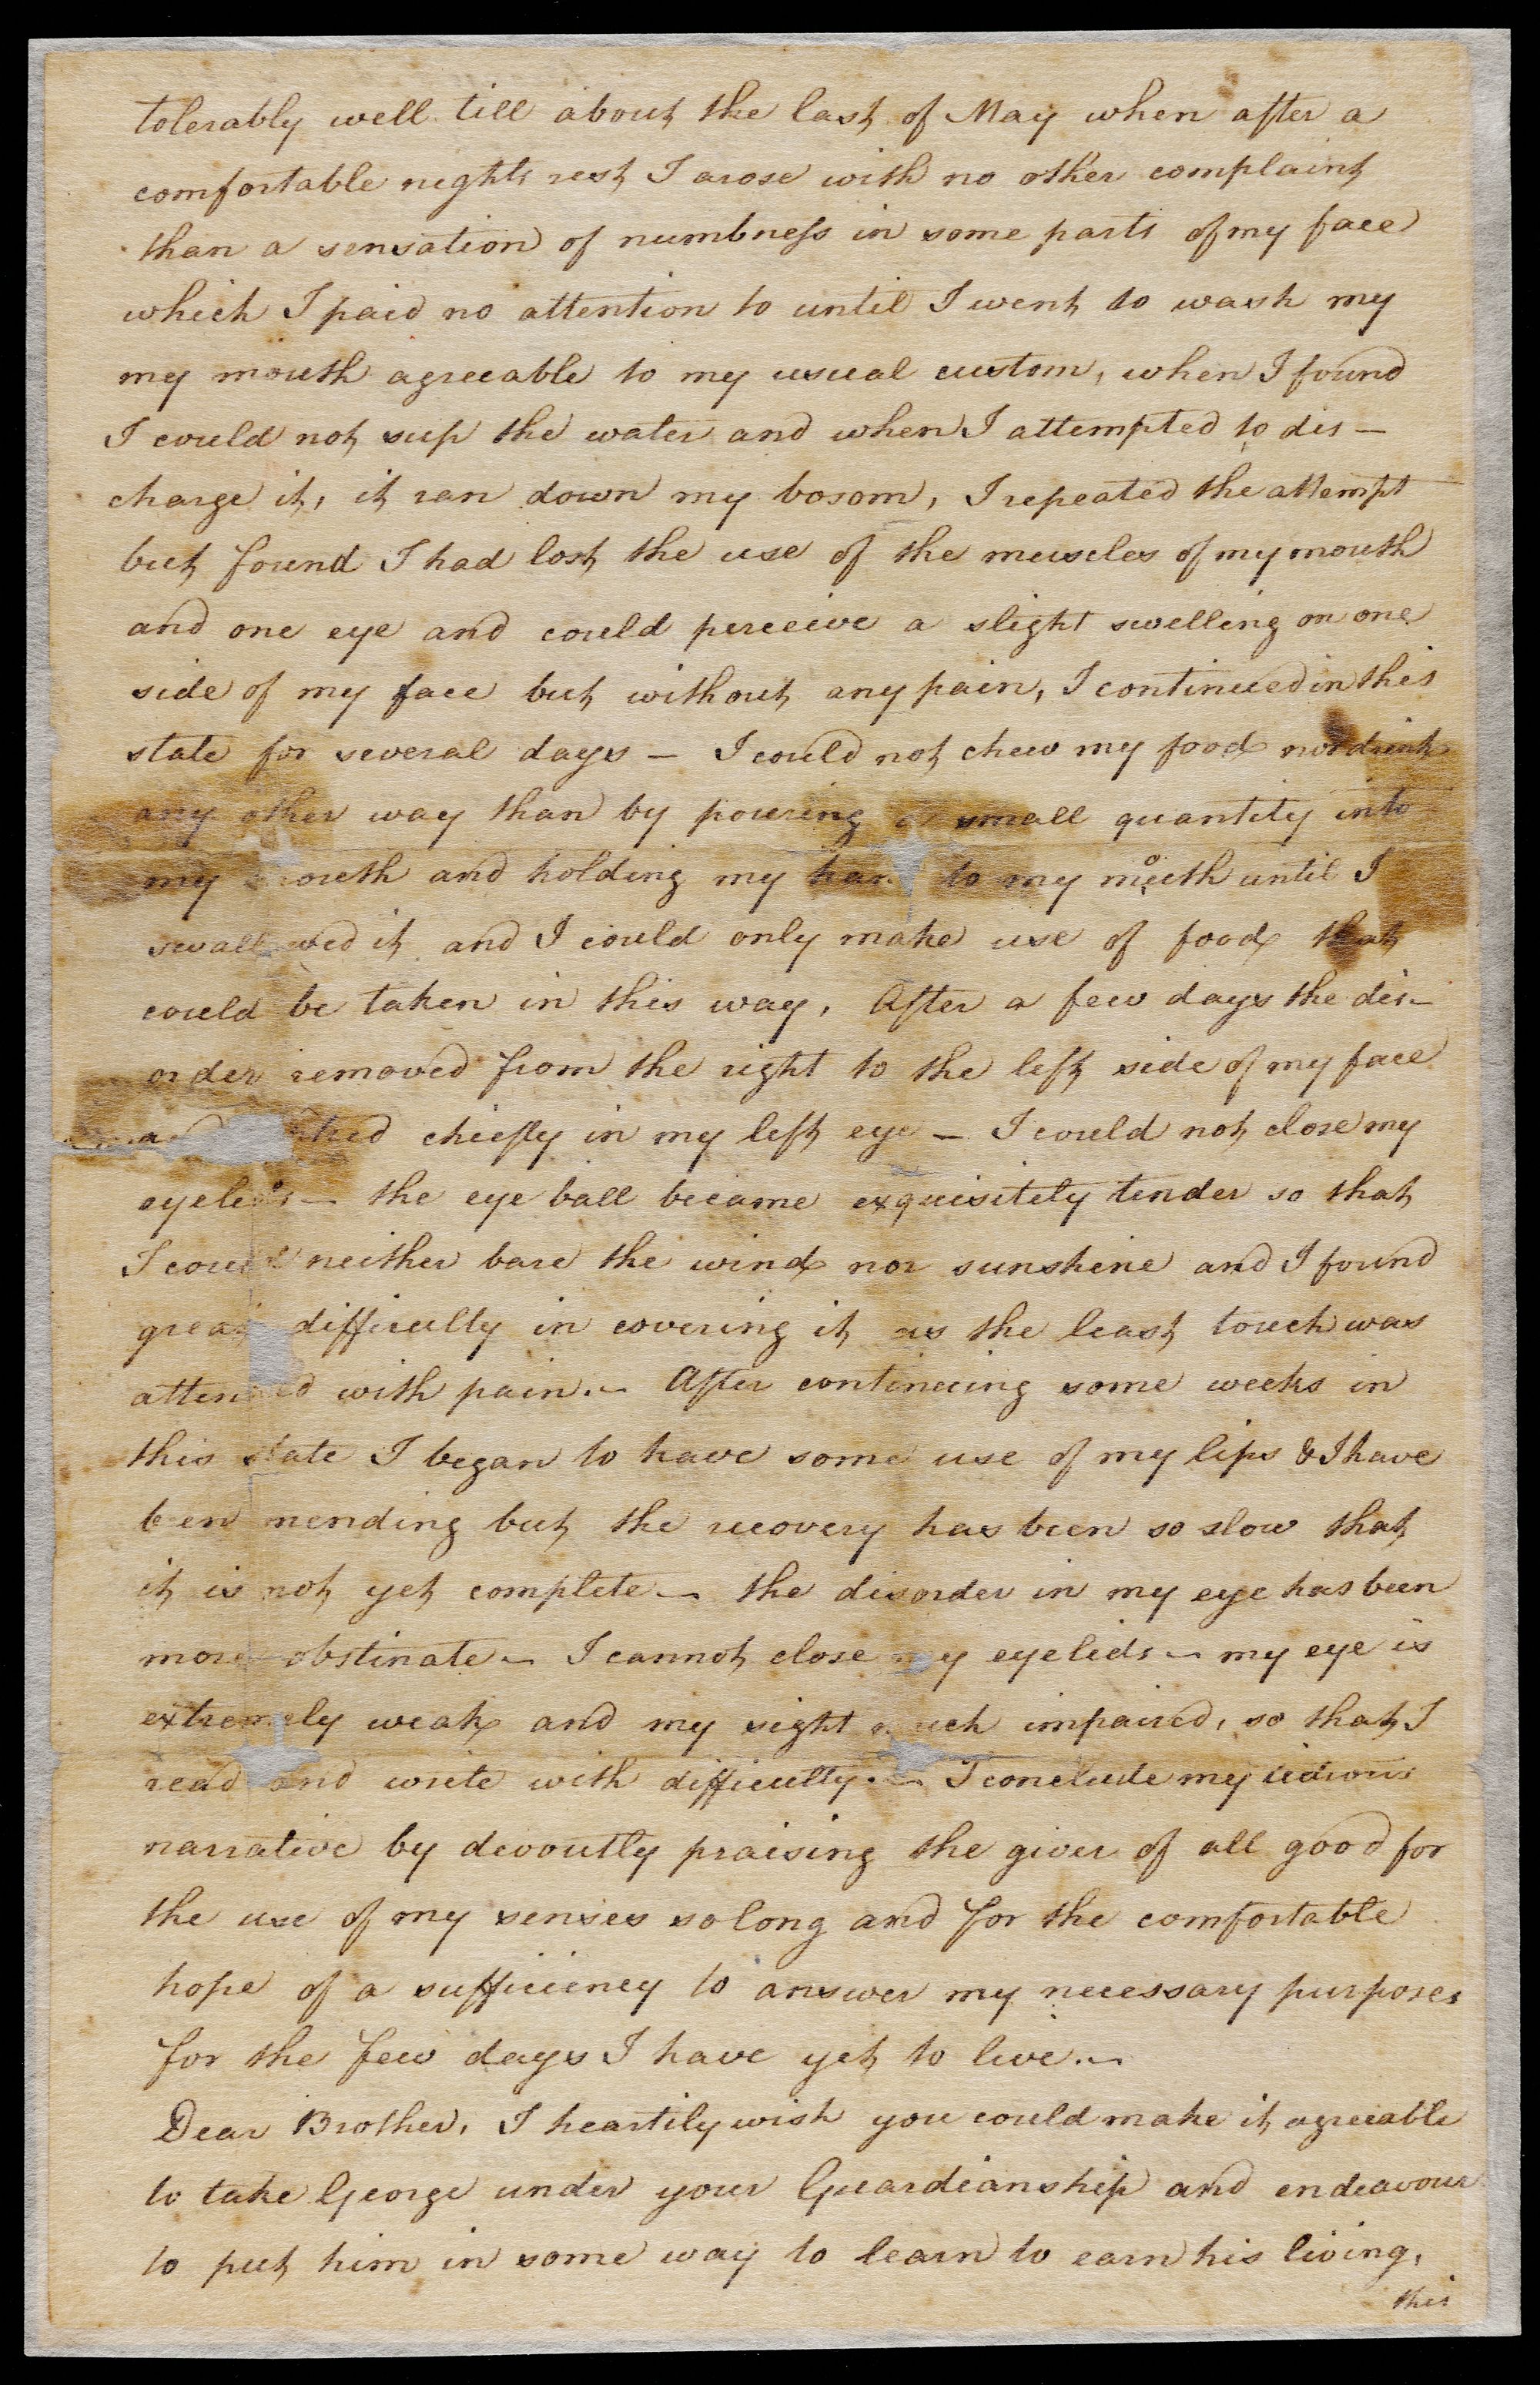 tolerably well till about the last of May when after a
comfortable nights rest I arose with no other complaint
than a sensation of numbness in some parts of my face
which I paid no attention to until I went to wash my
my mouth agreeable to my usual custom, when I found
I could not sup the water and when I attempted to dis-
charge it, it ran down my bosom, I repeated the attempt
but found I had lost the use of the muscles of my mouth
and one eye and could perceive a slight swelling on one
side of my face but without any pain, I continued in this
state for several days - I could not chew my food nor drink
any other way than by pouring a small quantity into
my mouth and holding my han to my mouth until I
swallowed it and I could only make use of food that
could be taken in this way, After a few days the dis-
order removed from the right to the left side of my face
chiefly in my left eye - I could not close my
eyelids - the eye ball became exquisitely tender so that
I could neither bare the wind nor sunshine and I found
great difficulty in covering it as the least touch was
attended with pain. - After continuing some weeks in
this state I began to have some use of my lips & I have
been mending but the recovery has been so slow that
it is not yet complete - the disorder in my eye has been
more obstinate - I cannot close my eyelids - my eye is
extremely weak and my sight much impaired, so that I
read and write with difficulty. - I conclude my tedious
narrative by devoutly praising the giver of all good for
the use of my senses so long and for the comfortable
hope of a sufficiency to answer my necessary purposes
for the few days I have yet to live. -
Dear Brother, I heartily wish you could make it agreeable
to take George under your Guardianship and endeavour
to put him in some way to learn to earn his living,
this